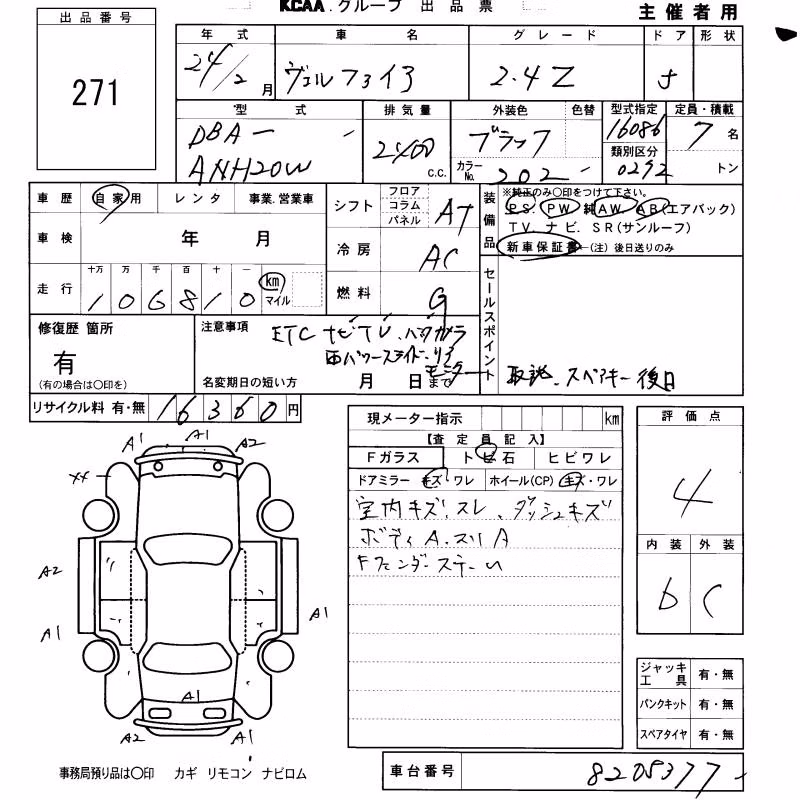 KCAA.グループ 出品票
主催者用
出品番号
271
年式 車名 グレード ドア 形状
24/2月 ヴェルファイア 2.4Z 5
型式 排気量 外装色 色替 型式指定 定員・積載
DBA-
ANH20W
2400 C.C.
ブラック
カラーNo. 202
16086
類別区分
0292
7名
トン
車歴 自家用 レンタ 事業.営業車
車検 年 月
走行 十万 万 千 百 十 一
106810 km マイル
シフト フロア コラム パネル AT
冷房 AC
燃料 G
装備品
※純正のみ○印をつけて下さい。
PS. PW 純AW. AB(エアバック)
TV. ナビ. SR(サンルーフ)
新車保証書 (注) 後日送りのみ
セールスポイント
取説、スペアキー後日
修復歴 箇所
有
(有の場合は○印を)
注意事項
ETC ナビTV、バックカメラ
両パワースライド、リア
モニター
名変期日の短い方 月 日まで
リサイクル料 有・無 16360円
現メーター指示 km
【査定員記入】
Fガラス トビ石 ヒビワレ
ドアミラー キズ・ワレ ホイール(CP) キズ・ワレ
室内キズ、スレ、ダッシュキズ
ボディA.スリA
評価点
4
内装 外装
b C
A1 A1 A2
XX
A2
A1 A1
A1
A2 A1
ジャッキ工具 有・無
パンクキット 有・無
スペアタイヤ 有・無
事務局預り品は○印 カギ リモコン ナビロム
車台番号 8205377